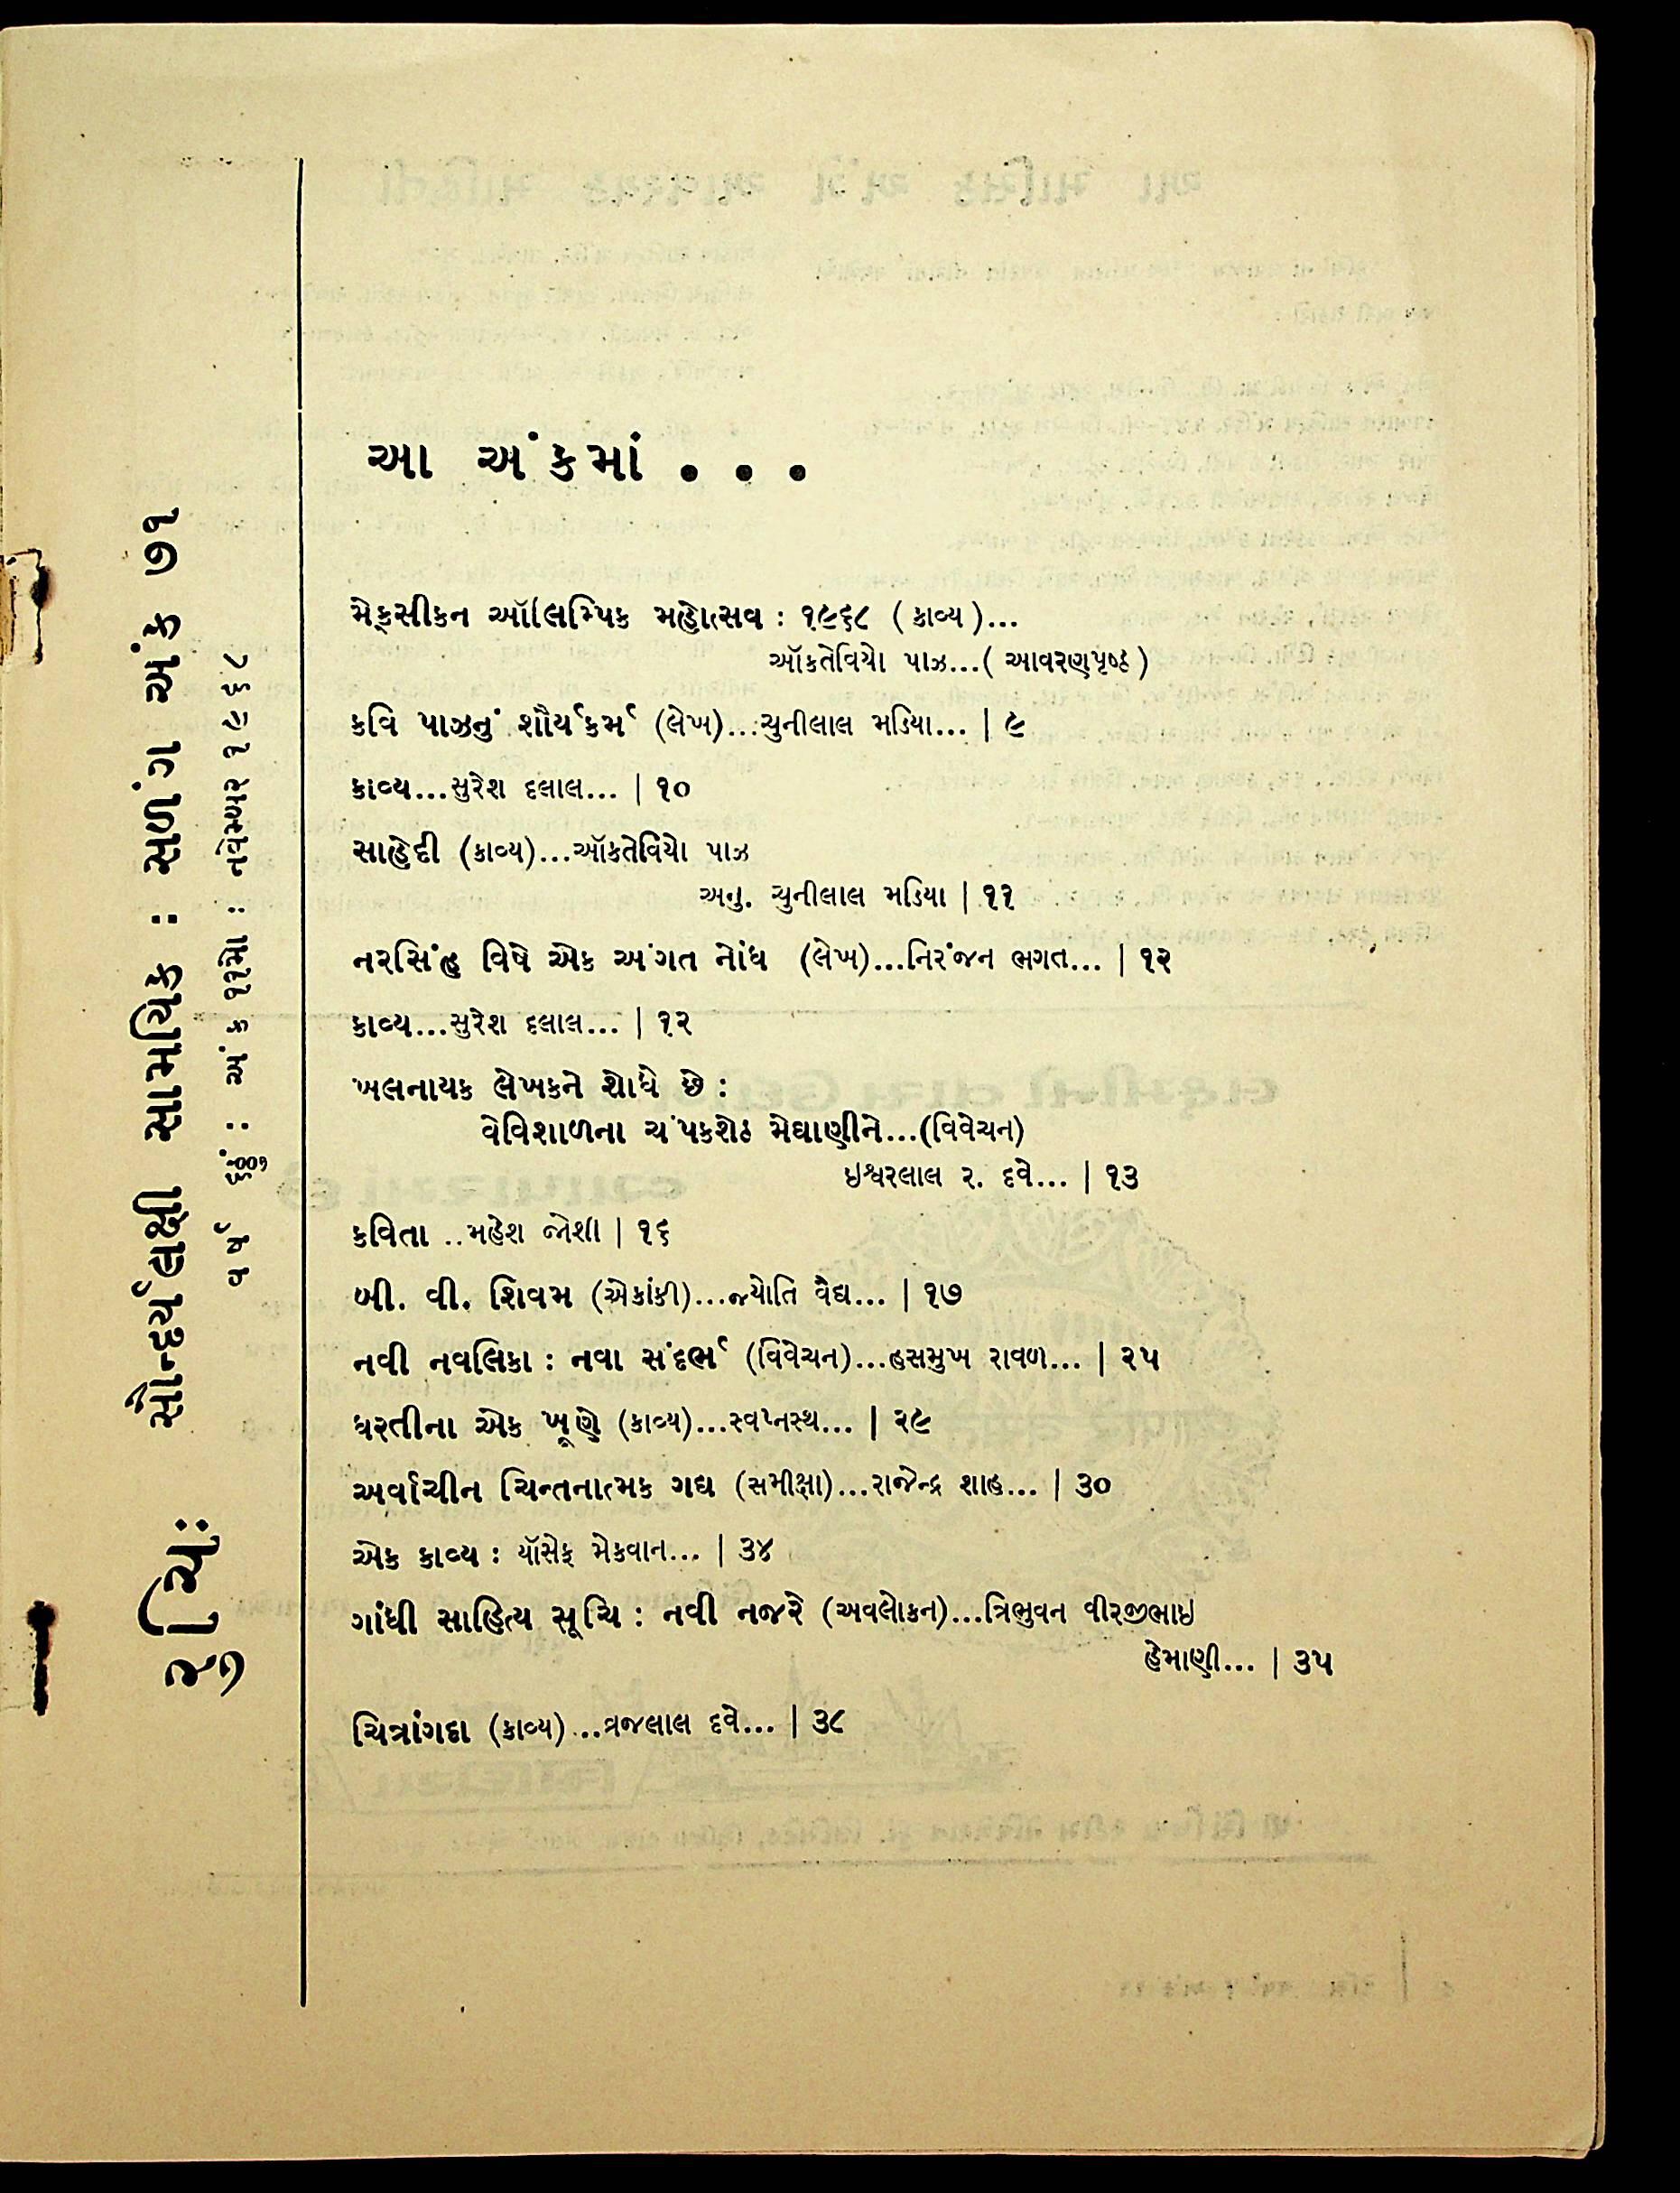 રુચિ:
સૌન્દર્યલક્ષી સામયિક : સળંગ અંક ૭૧
વર્ષ ૬ઠ્ઠું : અંક ૧૧મો : નવેમ્બર ૧૯૬૮
આ અંકમાં . . .
મેક્સીકન ઑલિમ્પિક મહોત્સવ : ૧૯૬૮ (કાવ્ય)...
ઑકતેવિયો પાઝ...( આવરણપૃષ્ઠ )
કવિ પાઝનું શૌર્યકર્મ (લેખ)...ચુનીલાલ મડિયા... | ૯
કાવ્ય...સુરેશ દલાલ... | ૧૦
સાહેદી (કાવ્ય)...ઑકતેવિયો પાઝ
અનુ. ચુનીલાલ મડિયા | ૧૧
નરસિંહ વિષે એક અંગત નોંધ (લેખ)...નિરંજન ભગત... | ૧૨
કાવ્ય...સુરેશ દલાલ... | ૧૨
ખલનાયક લેખકને શોધે છે :
વેવિશાળના ચંપકશેઠ મેઘાણીને...(વિવેચન)
ઇશ્વરલાલ ર. દવે... | ૧૩
કવિતા ..મહેશ જોશી | ૧૬
બી. વી. શિવમ (એકાંકી)...જ્યોતિ વૈદ્ય... | ૧૭
નવી નવલિકા : નવા સંદર્ભ (વિવેચન)...હસમુખ રાવળ... | ૨૫
ધરતીના એક ખૂણે (કાવ્ય)...સ્વપ્નસ્થ... | ૨૯
અર્વાચીન ચિન્તનાત્મક ગદ્ય (સમીક્ષા)...રાજેન્દ્ર શાહ... | ૩૦
એક કાવ્ય : યૉસેફ મેકવાન... | ૩૪
ગાંધી સાહિત્ય સૂચિ : નવી નજરે (અવલોકન)...ત્રિભુવન વીરજીભાઇ
હેમાણી... | ૩૫
ચિત્રાંગદા (કાવ્ય)...વ્રજલાલ દવે... | ૩૮